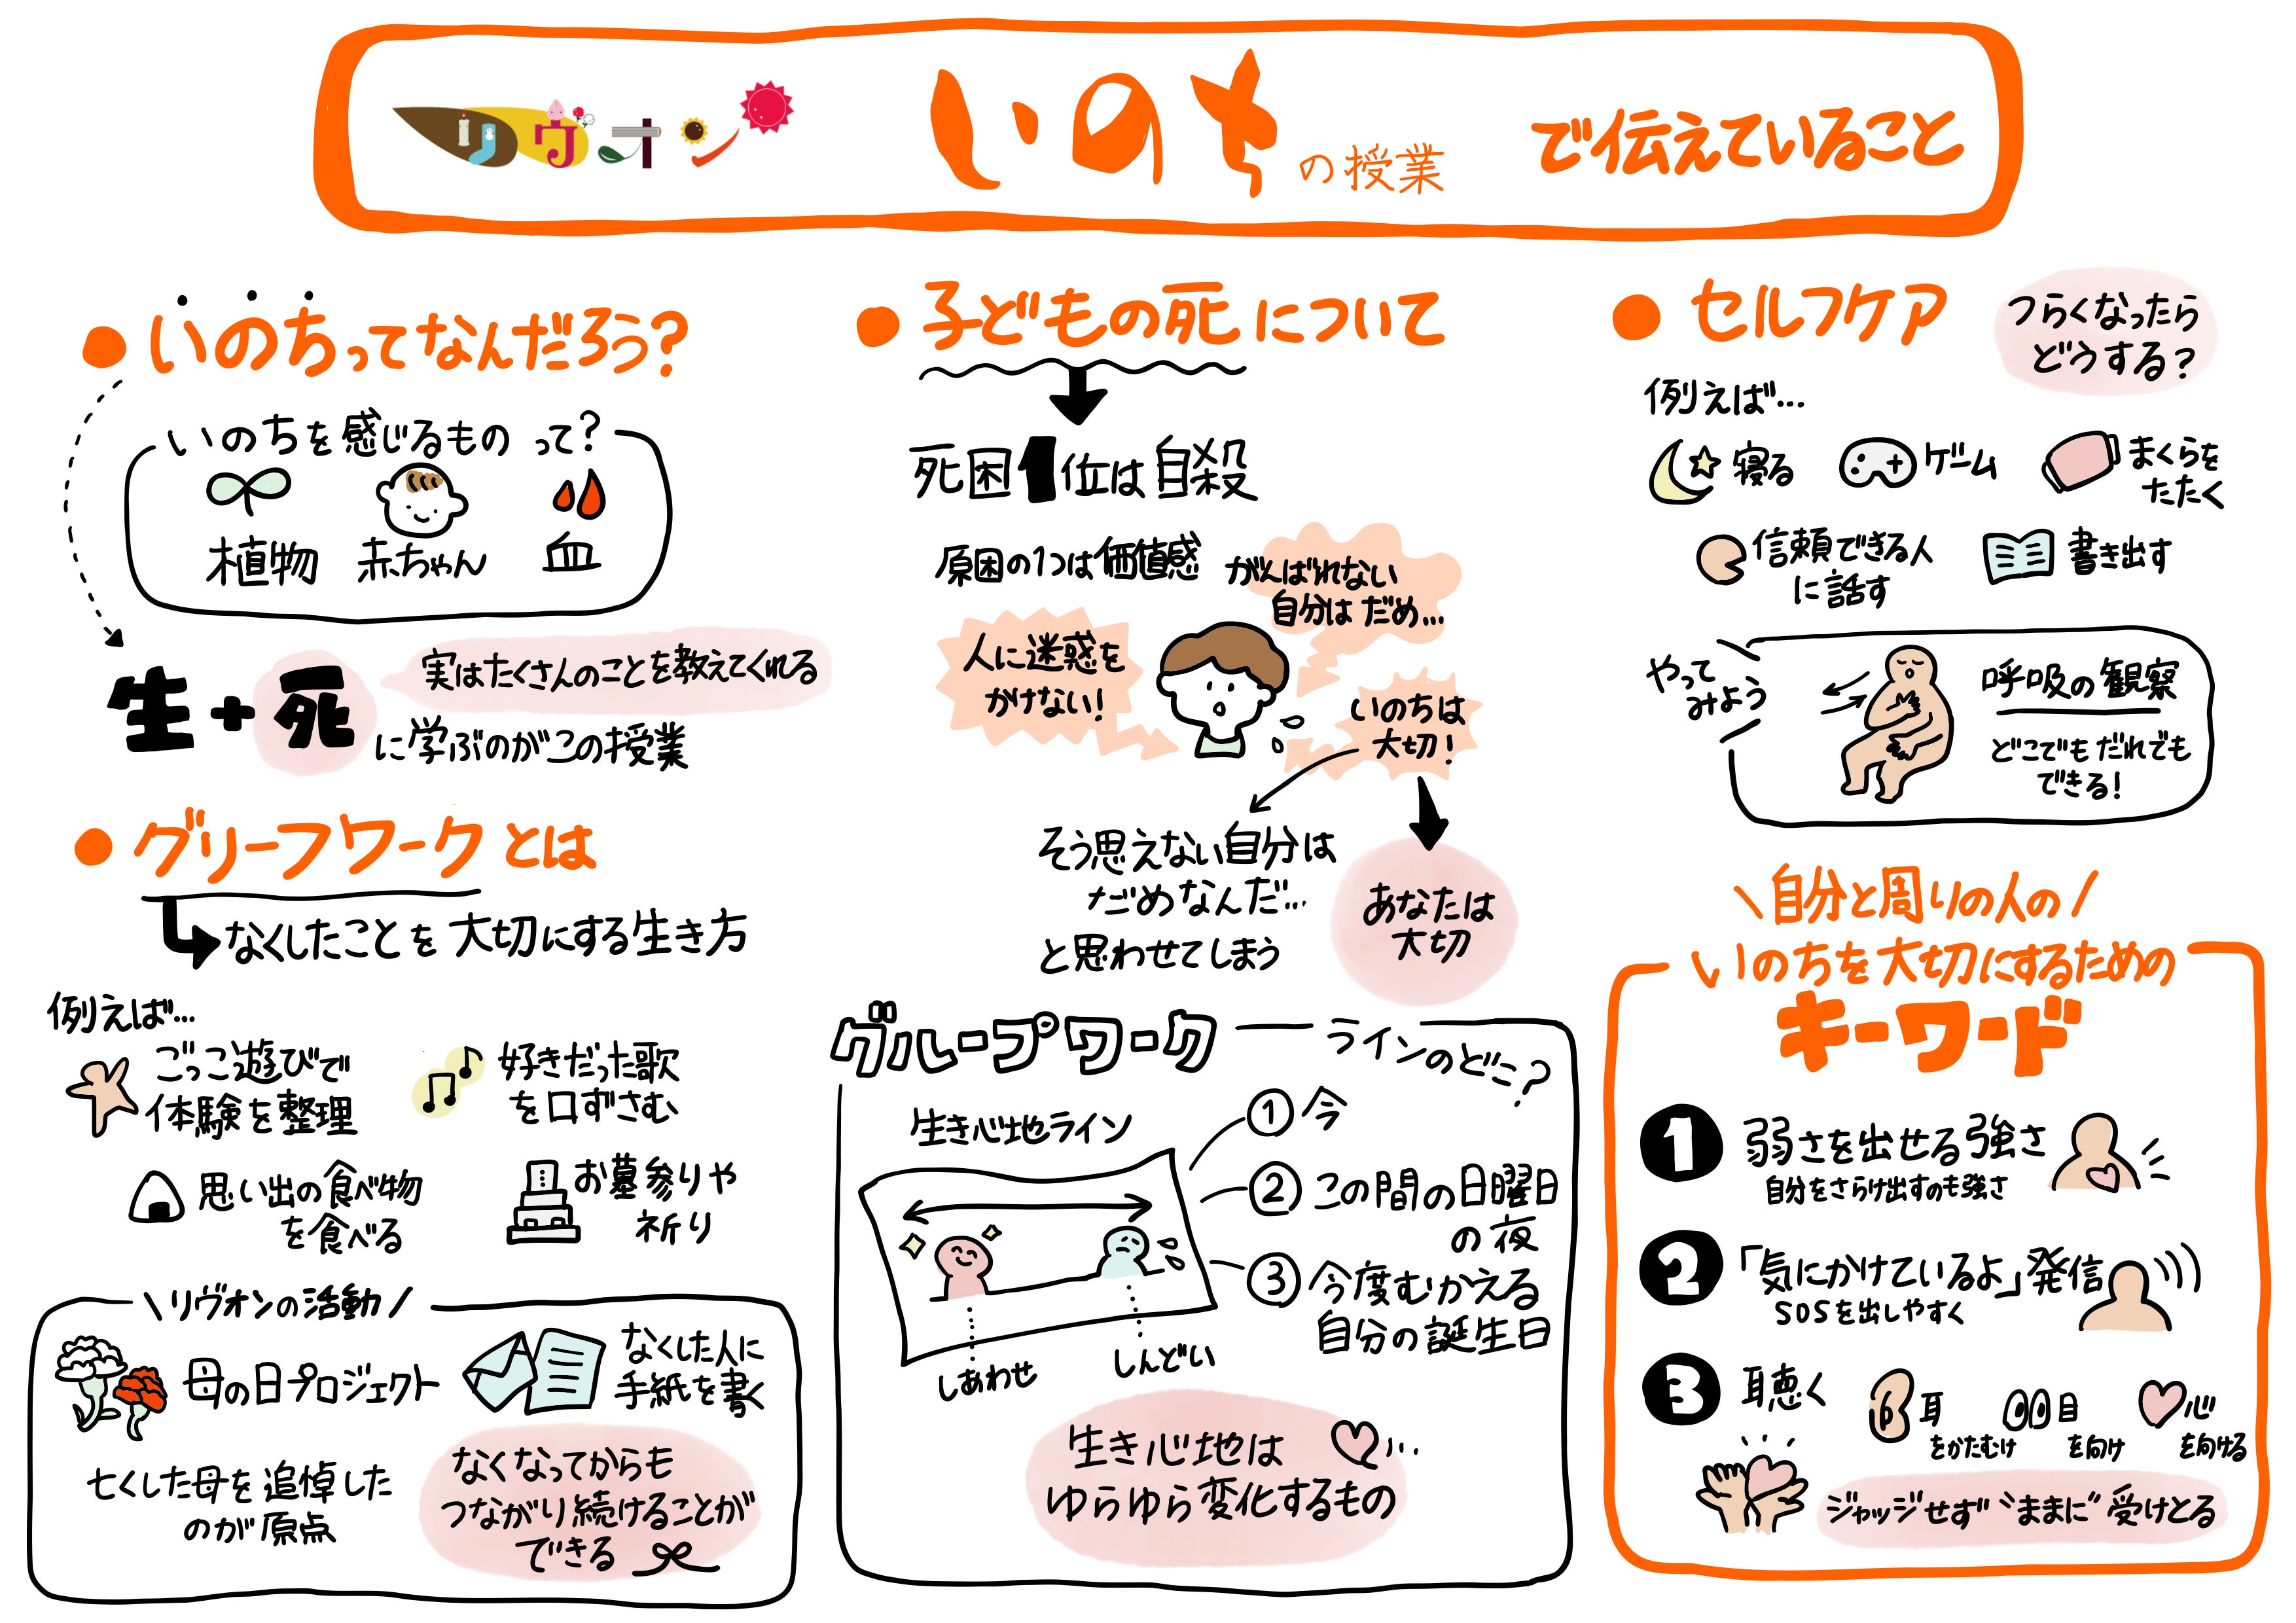 リヴオン いのちの授業 で伝えていること
● いのちってなんだろう?
いのちを感じるものって?
植物 赤ちゃん 血
生+死
実はたくさんのことを教えてくれる
に学ぶのがこの授業
● グリーフワークとは
なくしたことを大切にする生き方
例えば…
ごっこ遊びで
体験を整理
好きだった歌
を口ずさむ
思い出の食べ物
を食べる
お墓参りや
祈り
\リヴオンの活動/
母の日プロジェクト
なくした人に
手紙を書く
亡くした母を追悼した
のが原点
なくなってからも
つながり続けることが
できる
● 子どもの死について
死因1位は自殺
原因の1つは価値感
がんばれない
自分はだめ…
人に迷惑を
かけない!
いのちは
大切!
そう思えない自分は
だめなんだ…
と思わせてしまう
あなたは
大切
グループワーク
ラインのどこ?
生き心地ライン
しあわせ
しんどい
①今
②この間の日曜日
の夜
③今度むかえる
自分の誕生日
生き心地は
ゆらゆら変化するもの
● セルフケア
つらくなったら
どうする?
例えば…
寝る
ゲーム
まくらを
たたく
信頼できる人
に話す
書き出す
やって
みよう
呼吸の観察
どこでもだれでも
できる!
\自分と周りの人の/
いのちを大切にするための
キーワード
1 弱さを出せる強さ
自分をさらけ出すのも強さ
2 「気にかけているよ」発信
SOSを出しやすく
3 聴く
耳
をかたむけ
目
を向け
心
を向ける
ジャッジせず“ままに”受けとる